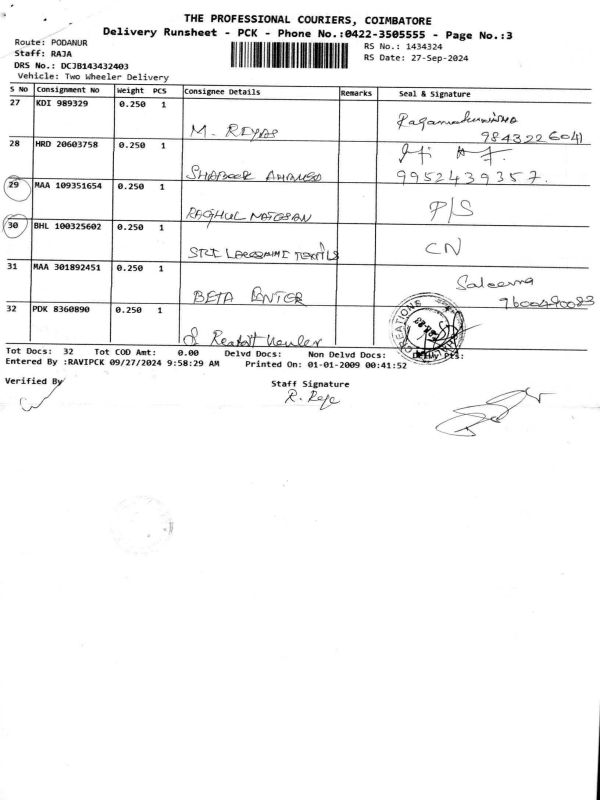 THE PROFESSIONAL COURIERS, COIMBATORE
Delivery Runsheet - PCK - Phone No.:0422-3505555 - Page No.:3
Route: PODANUR
RS No.: 1434324
Staff: RAJA
RS Date: 27-Sep-2024
DRS No.: DCJB143432403
Vehicle: Two Wheeler Delivery
S No Consignment No Weight PCS Consignee Details Remarks Seal & Signature
27 KDI 989329 0.250 1
M. REYAS
9843226041
28 HRD 20603758 0.250 1
SHABEER AHAMED
9952439357.
29 MAA 109351654 0.250 1
RAGHUL P/S
30 BHL 100325602 0.250 1
SRI CN
31 MAA 301892451 0.250 1
BETA
Saleema
9600490083
32 PDK 8360890 0.250 1
CREATIONS
Tot Docs: 32 Tot COD Amt: 0.00 Delvd Docs: Non Delvd Docs:
Entered By :RAVIPCK 09/27/2024 9:58:29 AM Printed On: 01-01-2009 00:41:52
Verified By
Staff Signature
R. Raja